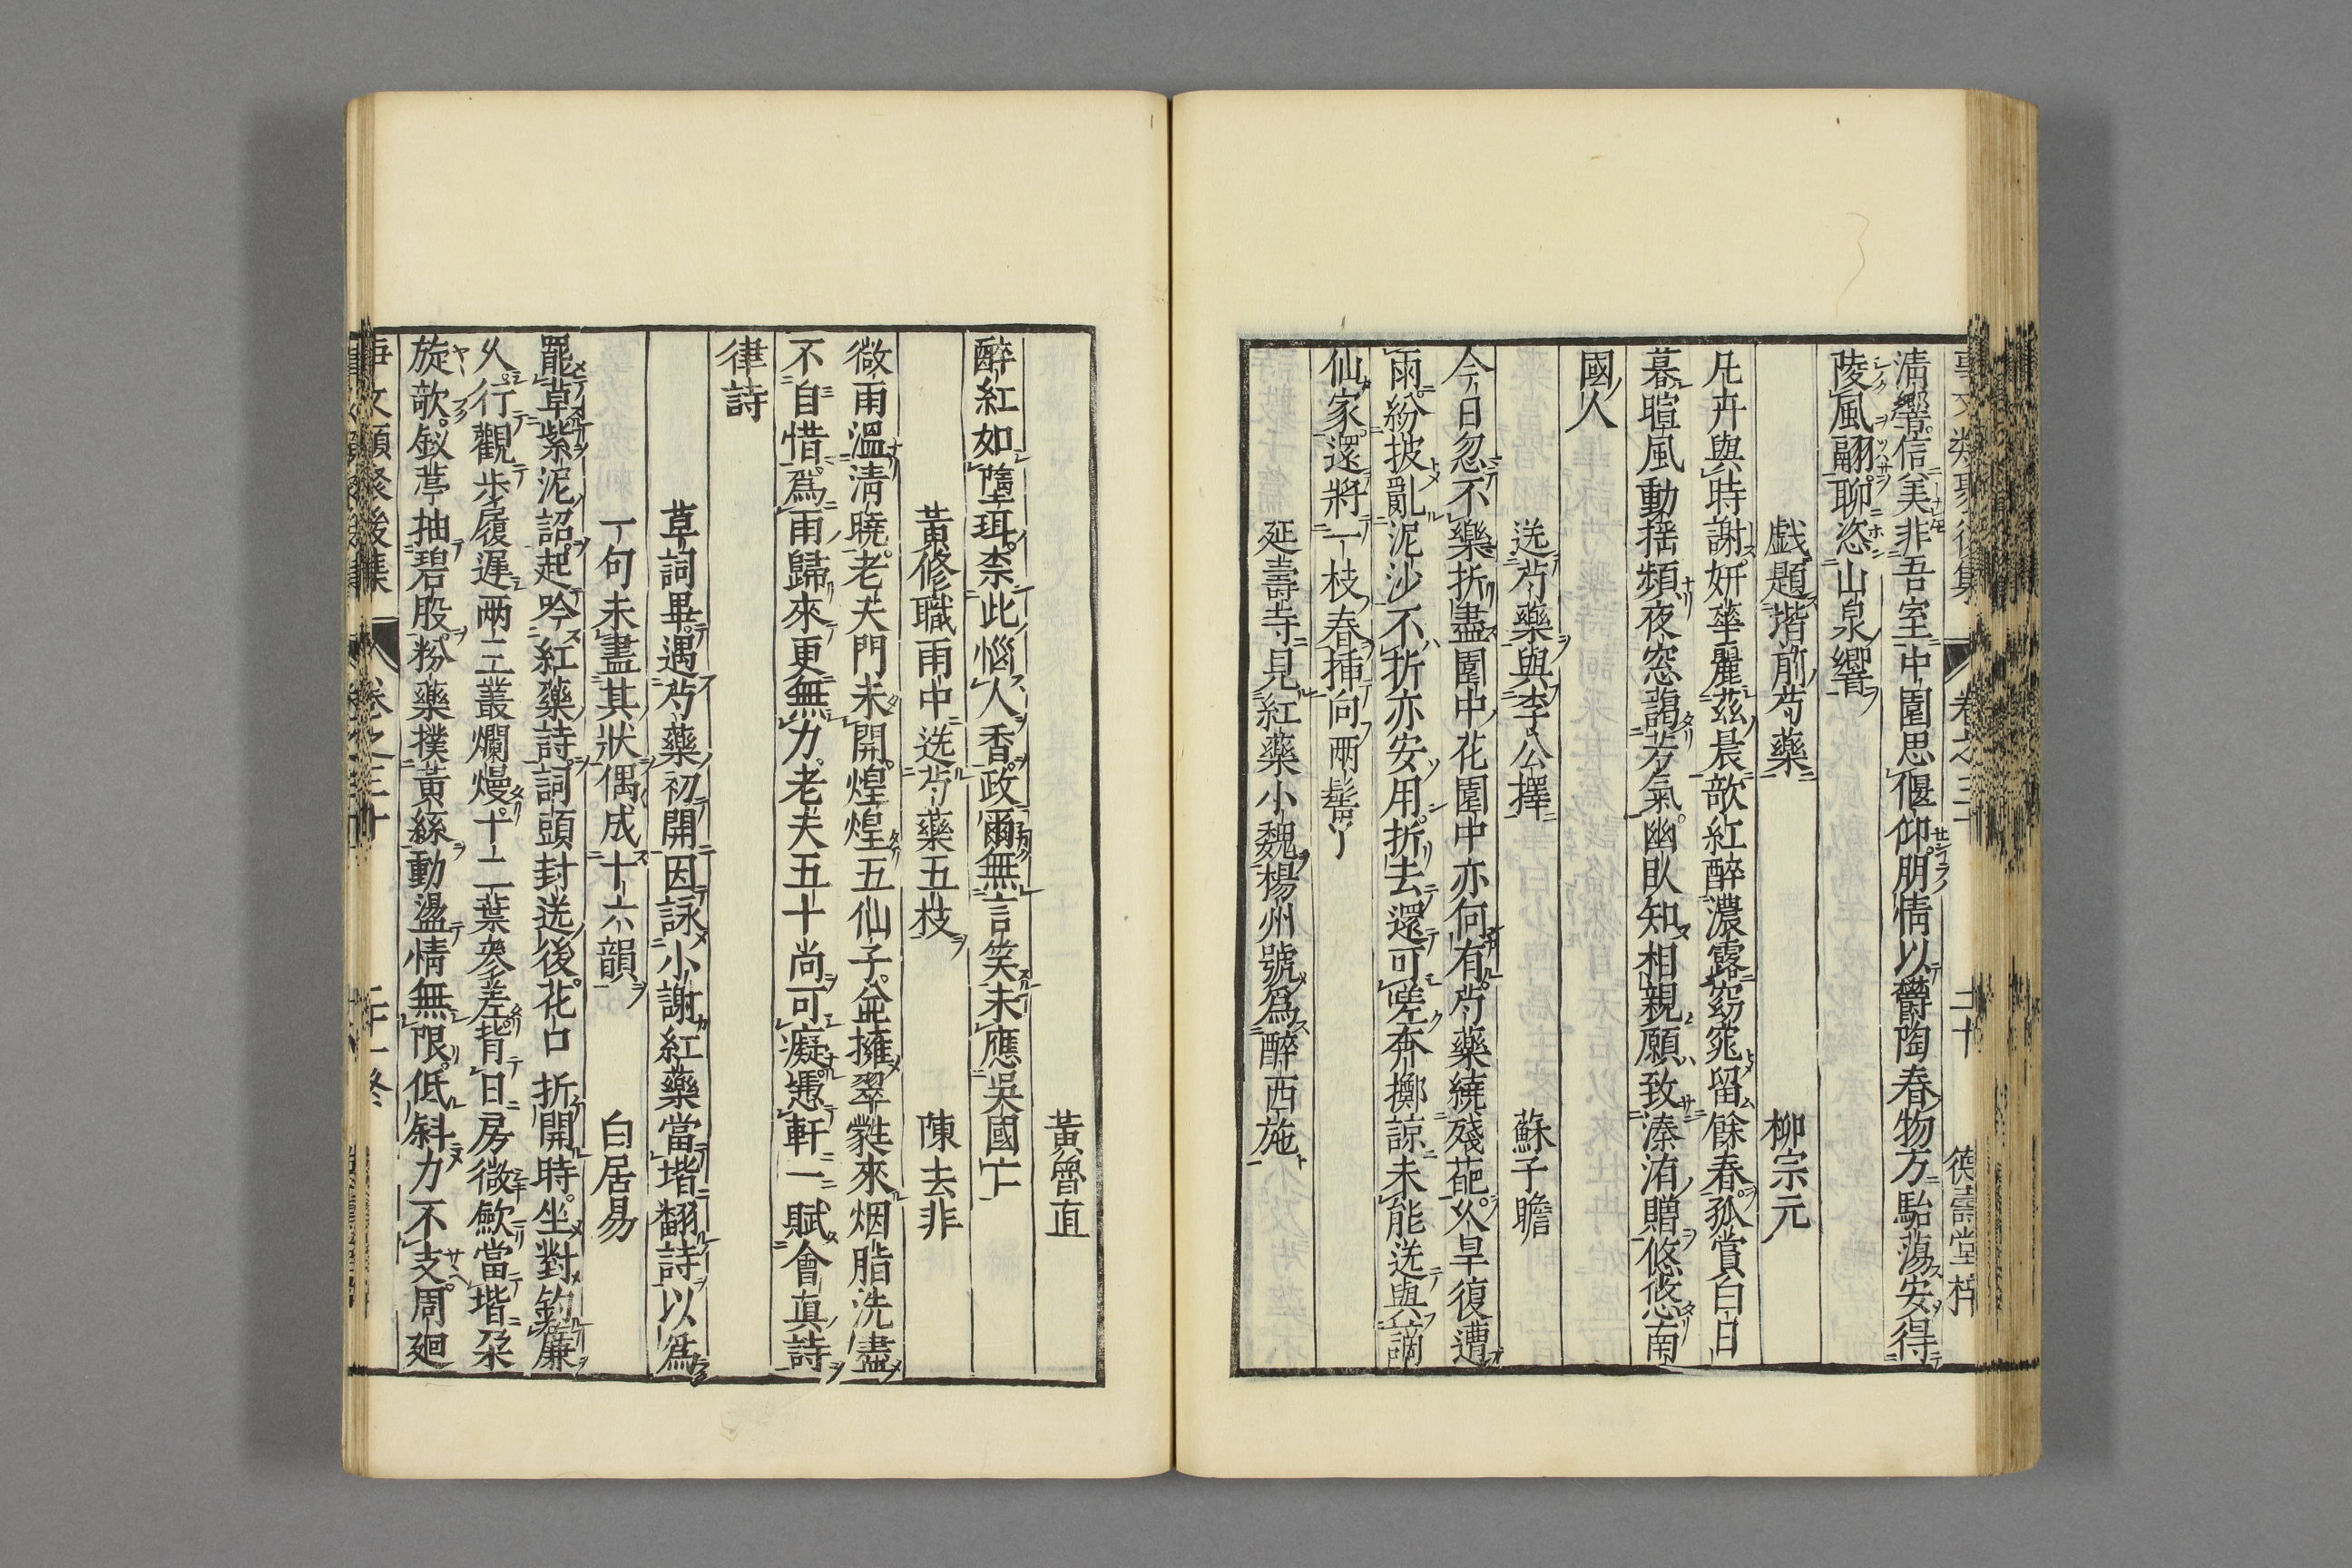 事文類聚後集 卷之三十 二十 德壽堂梓
淸響信美非吾室中園思偃仰朋情以欝陶春物方駘蕩安得
陵風翮聊恣山泉響
戯題堦前芍藥 柳宗元
凡卉與時謝妍華麗茲晨欹紅醉濃露窈窕留餘春孤賞白日
暮暄風動揺頻夜窓藹芳氣幽臥知相親願致溱洧贈悠悠南
國人
送芍藥與李公擇 蘇子瞻
今日忽不樂折盡園中花園中亦何有芍藥繞殘葩久旱復遭
雨紛披亂泥沙不折亦安用折去還可嗟弃擲諒未能送與謫
仙家還將一枝春挿向兩髻丫
延壽寺見紅藥小魏楊州號爲醉西施
黃魯直
醉紅如墮珥柰此惱人香政爾無言笑未應吳國亡
黃修職雨中送芍藥五枝 陳去非
微雨溫淸曉老夫門未開煌煌五仙子並擁翠蕤來烟脂洗盡
不自惜爲雨歸來更無力老夫五十尚可癡慿軒一賦會真詩
律詩
草詞畢遇芍藥初開因詠小謝紅藥當堦翻詩以爲
一句未盡其狀偶成十六韻 白居易
罷草紫泥詔起吟紅藥詩詞頭封送後花口折開時坐對鈎簾
久行觀步履遲兩三叢爛熳十二葉參差背日房微歛當堦朶
旋欹釵葶抽碧股粉蘂撲黃絲動盪情無限低斜力不支周廻
事文類聚後集 卷之三十 二十一終